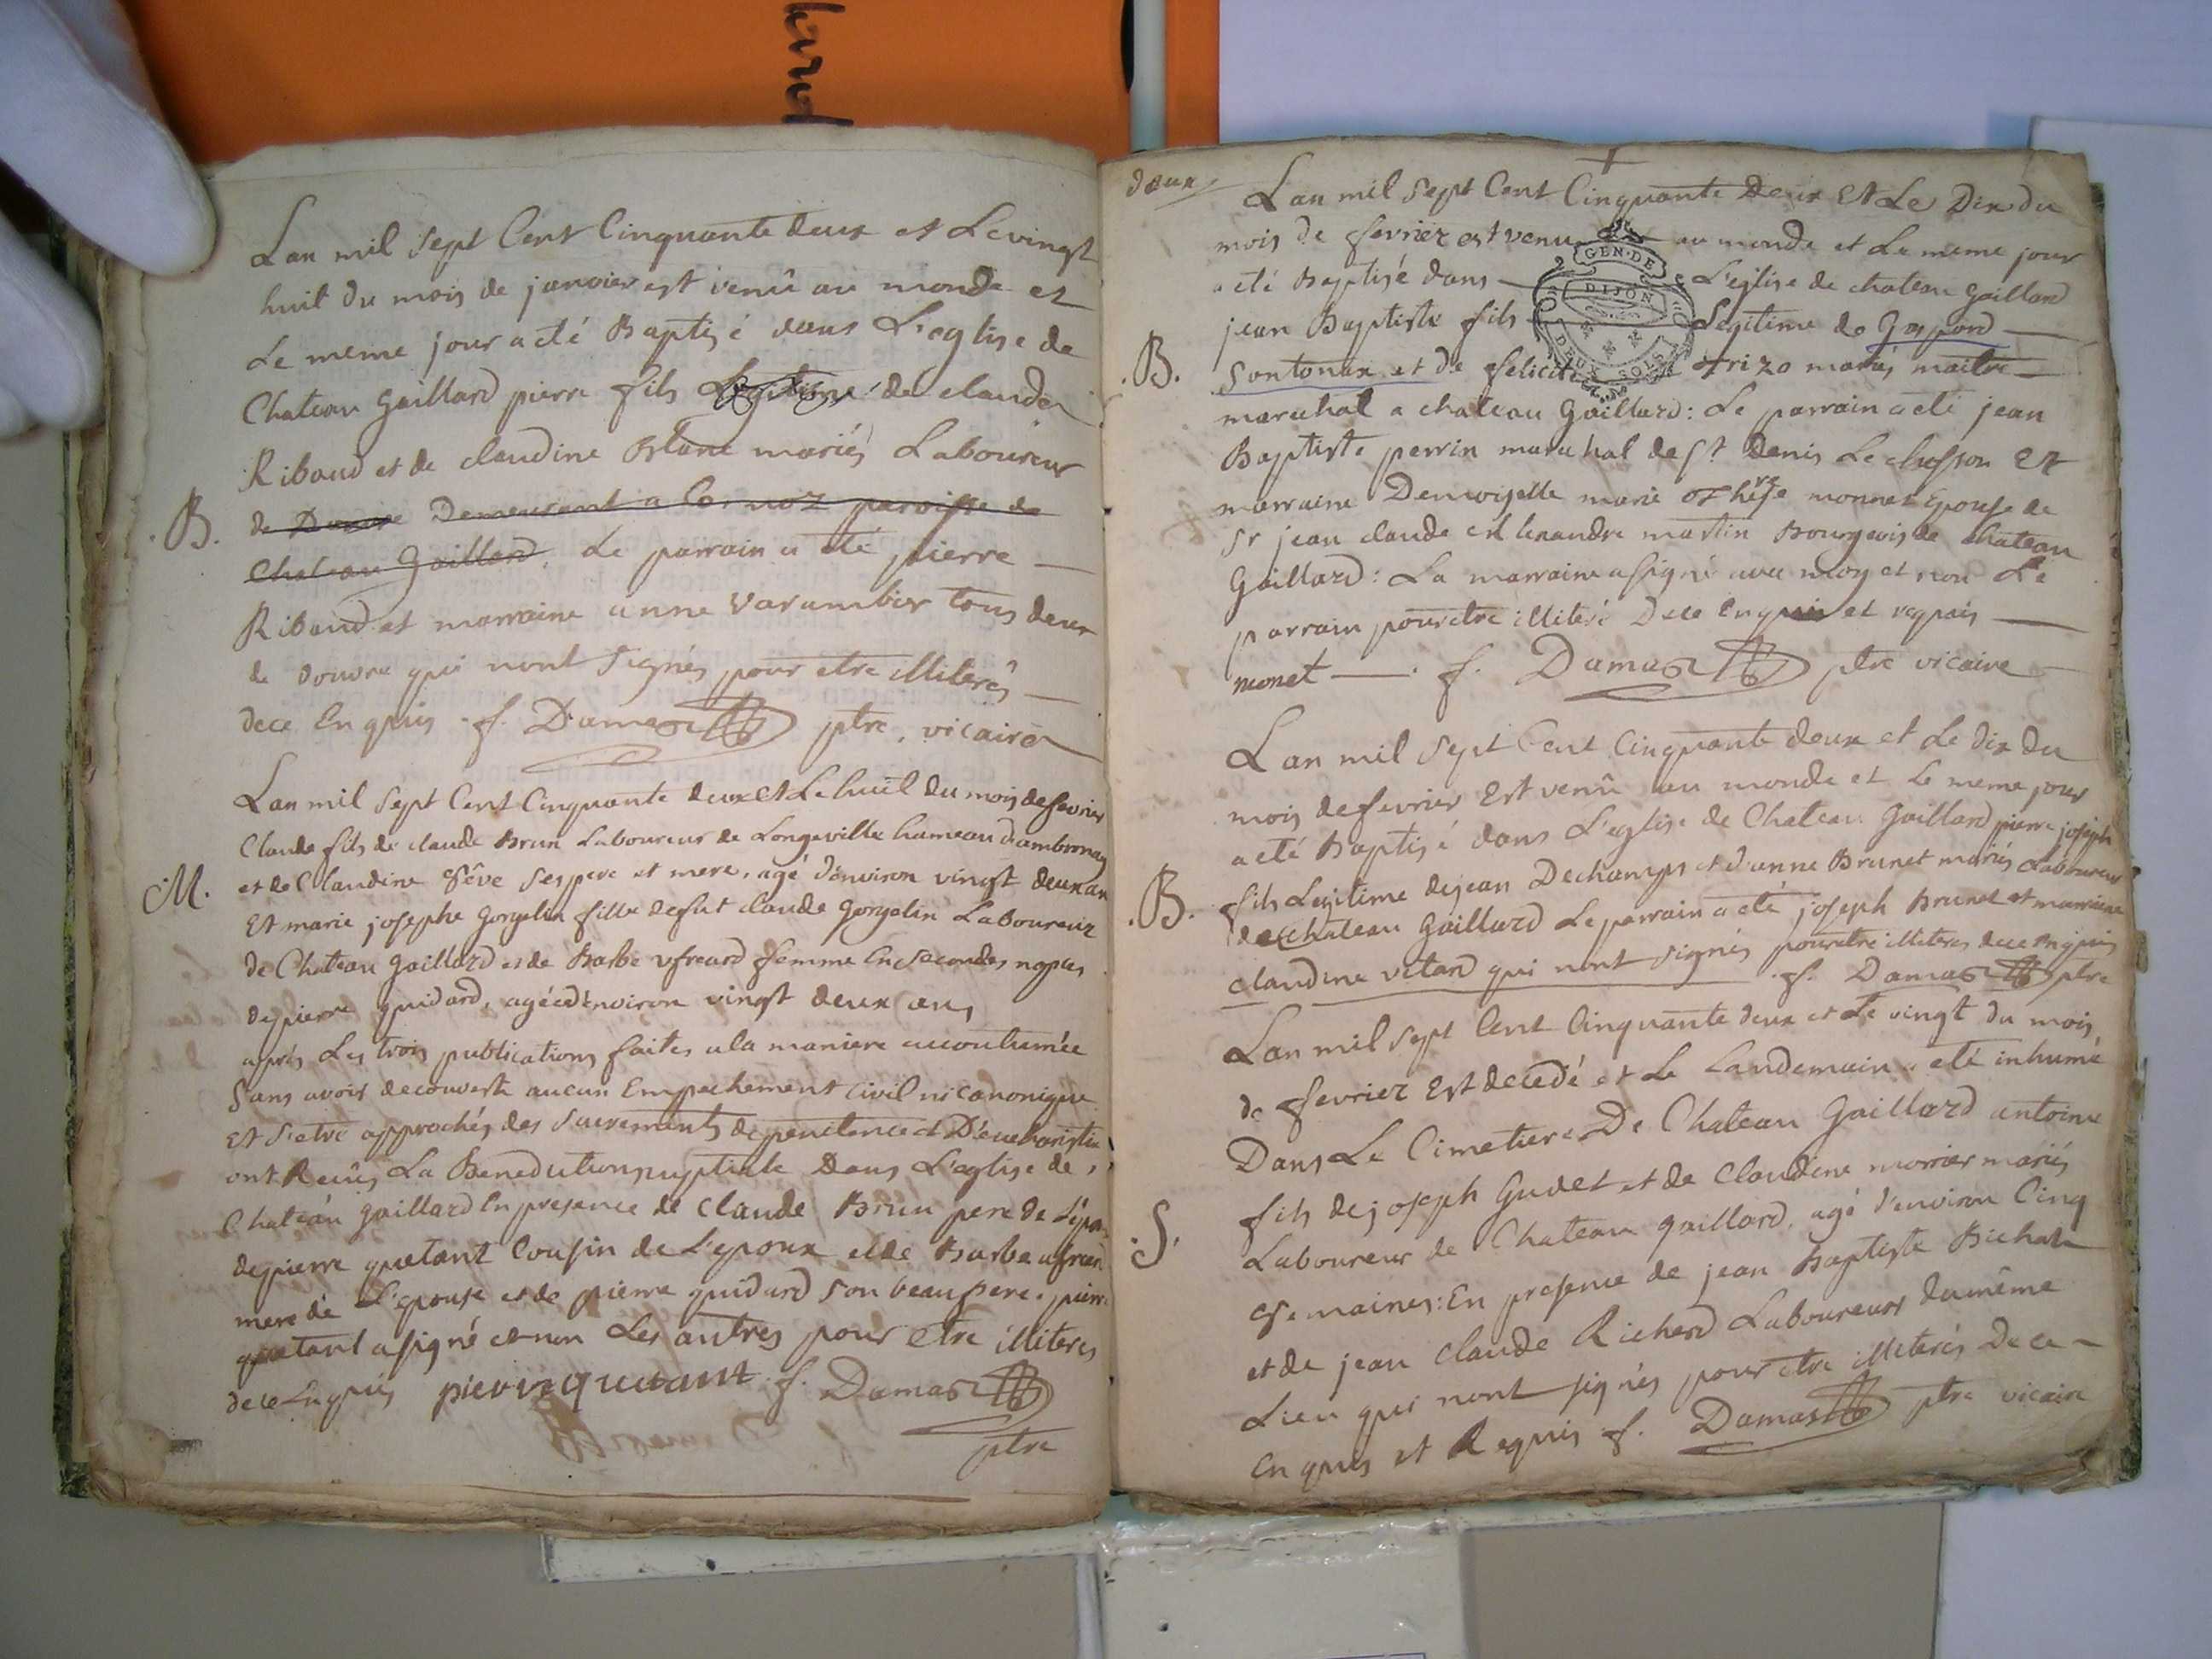 Lan mil sept Cent Cinquante deux et Le vingt
huit du mois de janvier est venû au monde et
Le meme jour a eté Baptisé dans L'eglise de
Chateau Gaillard pierre fils Legitime de claude
Ribaud et de claudine mariés Laboureur
B.
de Douvre Demeurant a Cornoz paroisse de
Chateau Gaillard. Le parrain a eté pierre
Ribaud et marraine anne Varambier tous deux
de douvre qui nont signés pour etre illiterés
de ce Enquis f. Damas ptre, vicaire
Lan mil sept Cent Cinquante deux et Le huit du mois de fevrier
Claude fils de claude Brun Laboureur de Longeville hameau dambronay
M.
et de Claudine fêve ses pere et mere, agé d'environ vingt deux an
Et marie josephe Gorgelin fille defut claude Gorgelin Laboureur
de Chateau Gaillard et de Barbe femme En secondes nopces
de pierre guidard, agée d'environ vingt deux ans
après Les trois publications faites a la maniere accoutumée
Sans avoir decouvert aucun Empechement civil ni canonique
Et s'etre approchés des sacrements de penitence et D'eucharistie
ont Reçûs La Benediction nuptiale Dans L'eglise de
Chateau gaillard En presence de Claude Brun pere de L'epoux
de pierre quetant Cousin de L'epoux et de Barbe
mere de L'epouse et de pierre guidard son beaupere. pierre
quetant a signé et non Les autres pour Etre illiteres
de ce Enquis pierre quetant f. Damas
ptre
deux
Lan mil sept Cent Cinquante Deux Et Le Dix du
mois de fevrier est venu au monde et Le meme jour
a eté Baptisé dans L'eglise de chateau Gaillard
GEN. DE
DIJON
DEUX SOLS
jean Baptiste fils Legitime de Gaspard
B.
Sontonax et de felicité trizo mariés maitre
marechal a chateau Gaillard: Le parrain a eté jean
Baptiste perrin marechal de St. Denis Le chosson Et
marraine Demoiselle marie therese monnet Epouse de
Sr jean claude alexandre martin Bourgeois de chateau
Gaillard: La marraine a signé avec moy et non Le
parrain pour etre illiteré De ce Enquis et requis
monet f. Damas ptre vicaire
Lan mil sept Cent Cinquante deux et Le dix du
mois de fevrier Est venû au monde et Le meme jour
a eté Baptisé dans L'eglise de Chateau Gaillard pierre joseph
B.
fils Legitime de jean Dechamps et d'anne Brunet mariés Laboureur
de Chateau Gaillard Le parrain a eté joseph Brunet et marraine
claudine vitard qui nont signés pour etre illiteres de ce Enquis
f. Damas ptre
Lan mil sept Cent Cinquante deux et Le vingt du mois
de fevrier Est decedé et Le Landemain a eté inhumé
Dans Le Cimetiere De Chateau Gaillard antoine
fils de joseph Gudet et de Claudine morrier mariés
S.
Laboureur de Chateau gaillard, agé d'environ Cinq
semaines: En presence de jean Baptiste Bichat
et de jean Claude Richerd Laboureurs du même
Lieu qui nont signés pour etre illiterés De ce
Enquis et Requis f. Damas ptre vicaire